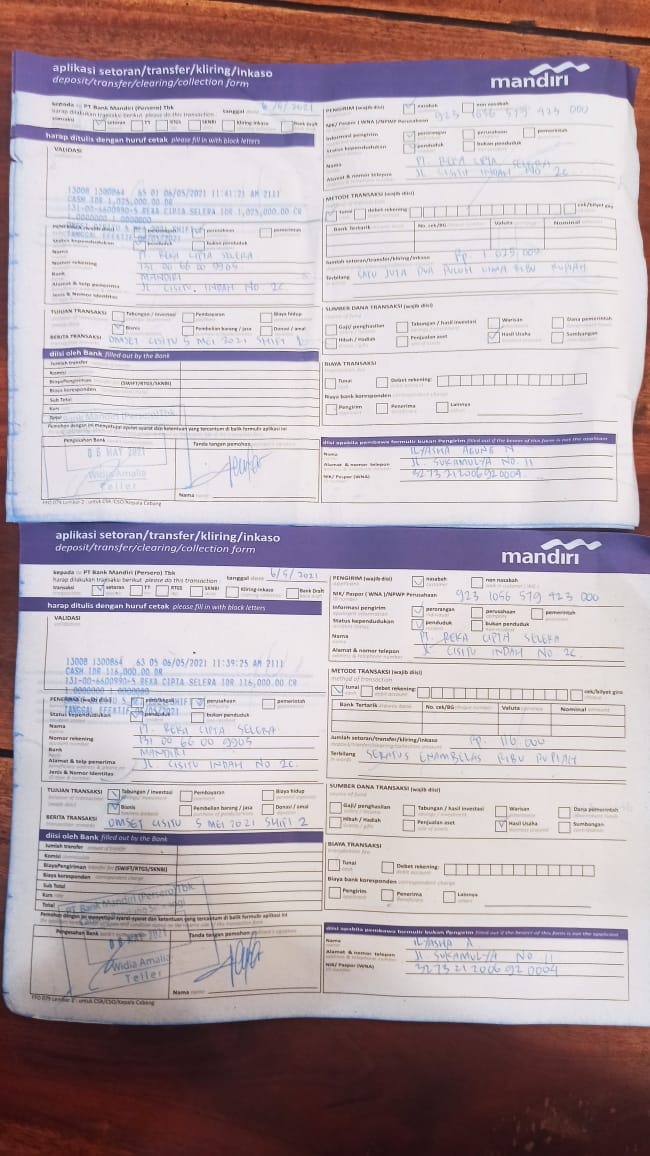 aplikasi setoran/transfer/kliring/inkaso
deposit/transfer/clearing/collection form
mandiri
kepada PT Bank Mandiri (Persero) Tbk
harap dilakukan transaksi berikut please do this transaction:
tanggal 6/5/2021
transaksi setoran TT RTGS SKNBI Kliring-Inkaso Bank Draft
harap ditulis dengan huruf cetak please fill in with block letters
VALIDASI
13008 1300864 65 01 06/05/2021 11:41:21 AM 2111
CASH IDR 1,025,000.00 DR
131-00-6600990-5 REKA CIPTA SELERA IDR 1,025,000.00 CR
1.0000000 1.0000000
PENERIMA (wajib diisi) perusahaan pemerintah
Status kependudukan penduduk bukan penduduk
Nama PT. REKA CIPTA SELERA
Nomor rekening 131 00 66 00 9905
Bank MANDIRI
Alamat & telp penerima JL. CISITU INDAH NO 2C.
Jenis & Nomor Identitas
TUJUAN TRANSAKSI Tabungan / Investasi Pembayaran Biaya hidup
Bisnis Pembelian barang / jasa Donasi / amal
BERITA TRANSAKSI OMSET CISITU 5 MEI 2021 SHIFT 1
diisi oleh Bank filled out by the Bank
Jumlah transfer
Komisi
Biaya Pengiriman (SWIFT/RTGS/SKNBI)
Biaya koresponden
Sub Total
Kurs
Total
Pemohon dengan ini menyetujui syarat-syarat dan ketentuan yang tercantum di balik formulir aplikasi ini
Pengesahan Bank Tanda tangan pemohon
06 MAY 2021
Widia Amalia
Teller
Nama
FFO 079 Lembar 2 : untuk CSR/CSO/Kepala Cabang
PENGIRIM (wajib diisi) nasabah non nasabah
NIK/ Paspor ( WNA )/NPWP Perusahaan 923 1056 579 423 000
Informasi pengirim perorangan perusahaan pemerintah
Status kependudukan penduduk bukan penduduk
Nama PT. REKA CIPTA SELERA
Alamat & nomor telepon JL CISITU INDAH NO 2C.
METODE TRANSAKSI (wajib diisi)
tunai debet rekening: cek/bilyet giro
Bank Tertarik No. cek/BG Valuta Nominal
Jumlah setoran/transfer/kliring/inkaso Rp. 1.025.000
Terbilang SATU JUTA DUA PULUH LIMA RIBU RUPIAH
SUMBER DANA TRANSAKSI (wajib diisi)
Gaji/ penghasilan Tabungan / hasil investasi Warisan Dana pemerintah
Hibah / Hadiah Penjualan aset Hasil Usaha Sumbangan
BIAYA TRANSAKSI
Tunai Debet rekening:
Biaya bank koresponden
Pengirim Penerima Lainnya
diisi apabila pembawa formulir bukan Pengirim filled out if the bearer of this form is not the applicant
Nama ILYASHA AGUNG N
Alamat & nomor telepon JL. SUKAMULYA NO. 11
NIK/ Paspor (WNA) 3273212006920004
aplikasi setoran/transfer/kliring/inkaso
deposit/transfer/clearing/collection form
mandiri
kepada to PT Bank Mandiri (Persero) Tbk
harap dilakukan transaksi berikut please do this transaction :
tanggal date 6/5/2021
transaksi setoran TT RTGS SKNBI Kliring-Inkaso Bank Draft
harap ditulis dengan huruf cetak please fill in with block letters
VALIDASI
13008 1300864 63 05 06/05/2021 11:39:25 AM 2111
CASH IDR 116,000.00 DR
131-00-6600990-5 REKA CIPTA SELERA IDR 116,000.00 CR
1.0000000 1.0000000
PENERIMA (wajib diisi) perusahaan pemerintah
Status kependudukan penduduk bukan penduduk
Nama PT. REKA CIPTA SELERA
Nomor rekening 131 00 66 00 9905
Bank MANDIRI
Alamat & telp penerima JL. CISITU INDAH NO 2C.
Jenis & Nomor Identitas
TUJUAN TRANSAKSI Tabungan / Investasi Pembayaran Biaya hidup
Bisnis Pembelian barang / jasa Donasi / amal
BERITA TRANSAKSI OMSET CISITU 5 MEI 2021 SHIFT 2
diisi oleh Bank filled out by the Bank
Jumlah transfer
Komisi
Biaya Pengiriman (SWIFT/RTGS/SKNBI)
Biaya koresponden
Sub Total
Kurs
Total
PT Bank Mandiri (Persero) Tbk
Pemohon dengan ini menyetujui syarat-syarat dan ketentuan yang tercantum di balik formulir aplikasi ini
Pengesahan Bank Tanda tangan pemohon
06 MAY 2021
Widia Amalia
Teller
Nama
FFO 079 Lembar 2 : untuk CSR/CSO/Kepala Cabang
PENGIRIM (wajib diisi) nasabah non nasabah
NIK/ Paspor ( WNA )/NPWP Perusahaan 923 1056 579 423 000
Informasi pengirim perorangan perusahaan pemerintah
Status kependudukan penduduk bukan penduduk
Nama PT. REKA CIPTA SELERA
Alamat & nomor telepon JL CISITU INDAH NO 2C.
METODE TRANSAKSI (wajib diisi)
tunai debet rekening: cek/bilyet giro
Bank Tertarik No. cek/BG Valuta Nominal
Jumlah setoran/transfer/kliring/inkaso Rp. 116.000
Terbilang SERATUS ENAMBELAS RIBU RUPIAH
SUMBER DANA TRANSAKSI (wajib diisi)
Gaji/ penghasilan Tabungan / hasil investasi Warisan Dana pemerintah
Hibah / Hadiah Penjualan aset Hasil Usaha Sumbangan
BIAYA TRANSAKSI
Tunai Debet rekening:
Biaya bank koresponden
Pengirim Penerima Lainnya
diisi apabila pembawa formulir bukan Pengirim filled out if the bearer of this form is not the applicant
Nama ILYASHA A
Alamat & nomor telepon JL SUKAMULYA NO 11
NIK/ Paspor (WNA) 3273212006920004